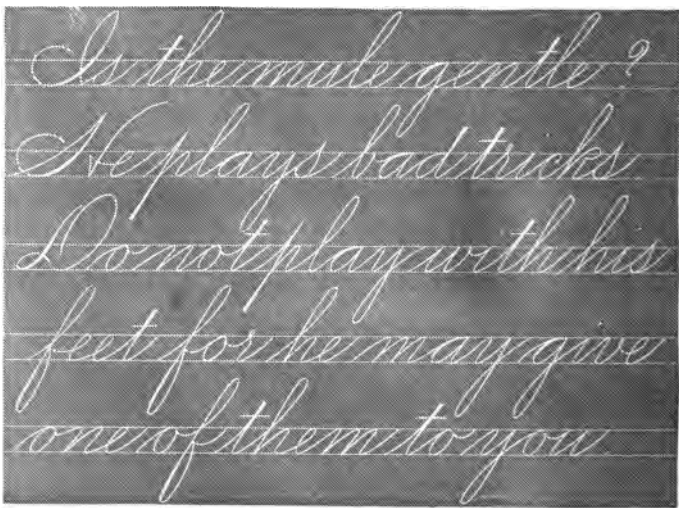 Is the mule gentle?
He plays bad tricks
Do not play with his
feet for he may give
one of them to you